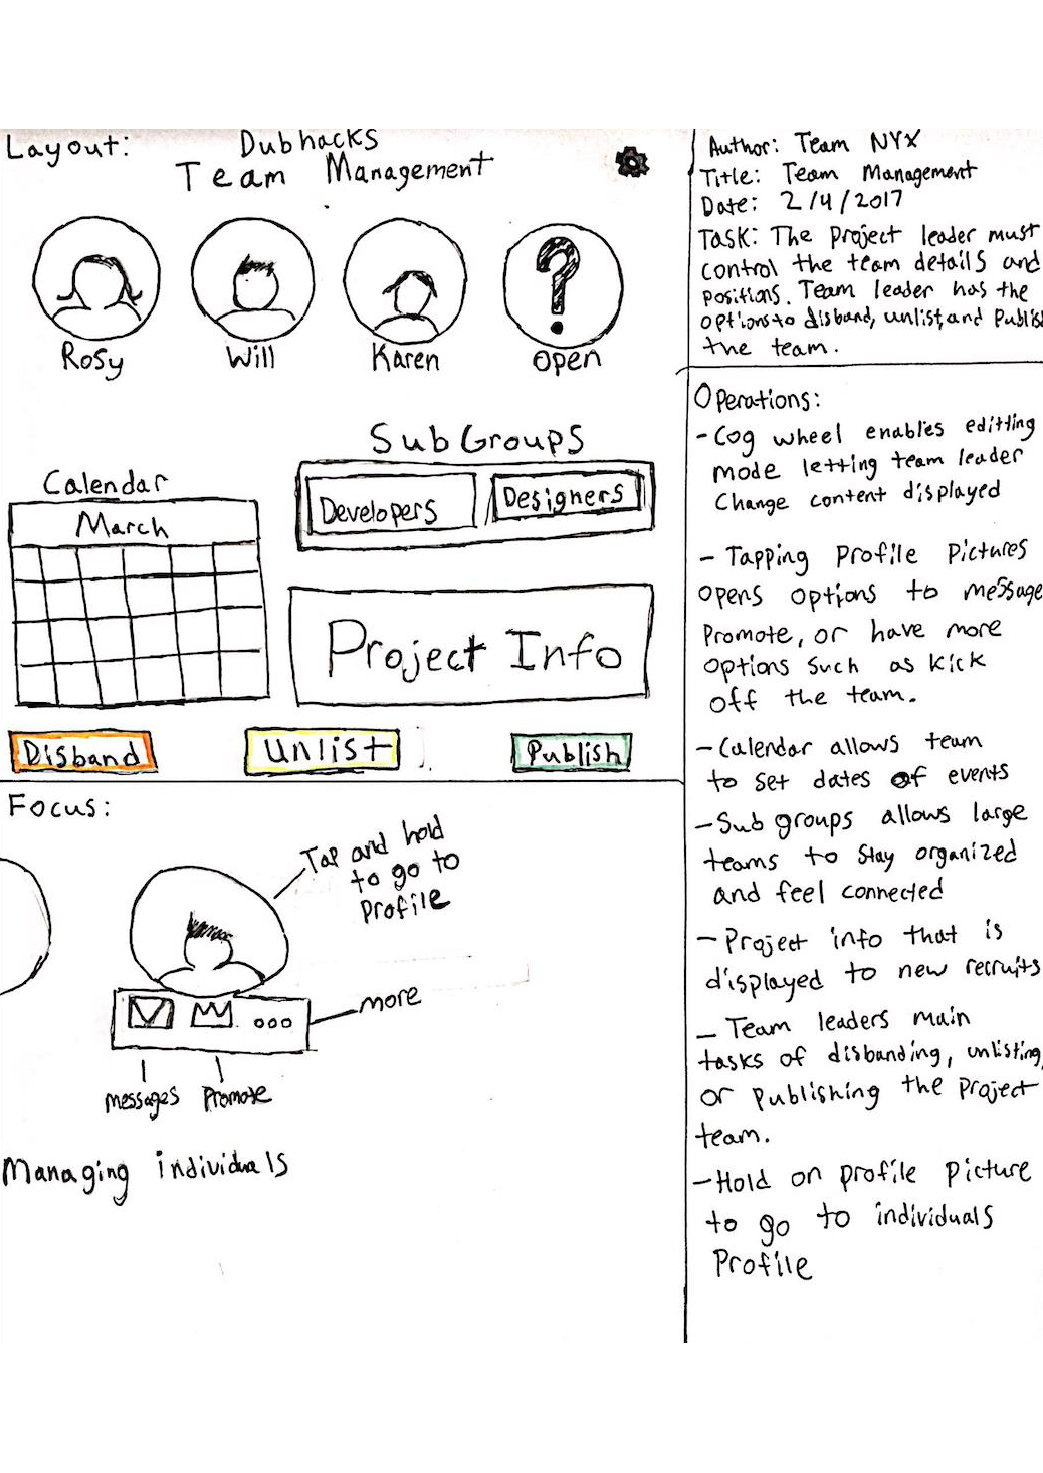 Layout:
Dubhacks
Team Management
Rosy
Will
Karen
Open
SubGroups
Developers
Designers
Calendar
March
Project Info
Disband
Unlist
Publish
Focus:
Tap and hold
to go to
Profile
more
messages
Promote
Managing individuals
Author: Team NYX
Title: Team Management
Date: 2/4/2017
Task: The Project leader must
control the team details and
positions. Team leader has the
options to disband, unlist, and Publish
the team.
Operations:
- Cog wheel enables editting
mode letting team leader
Change content displayed
- Tapping Profile Pictures
opens options to message
Promote, or have more
options such as kick
off the team.
- Calendar allows team
to set dates of events
- Sub groups allows large
teams to stay organized
and feel connected
- Project info that is
displayed to new recruits
- Team leaders main
tasks of disbanding, unlisting,
or publishing the project
team.
- Hold on profile picture
to go to individuals
Profile